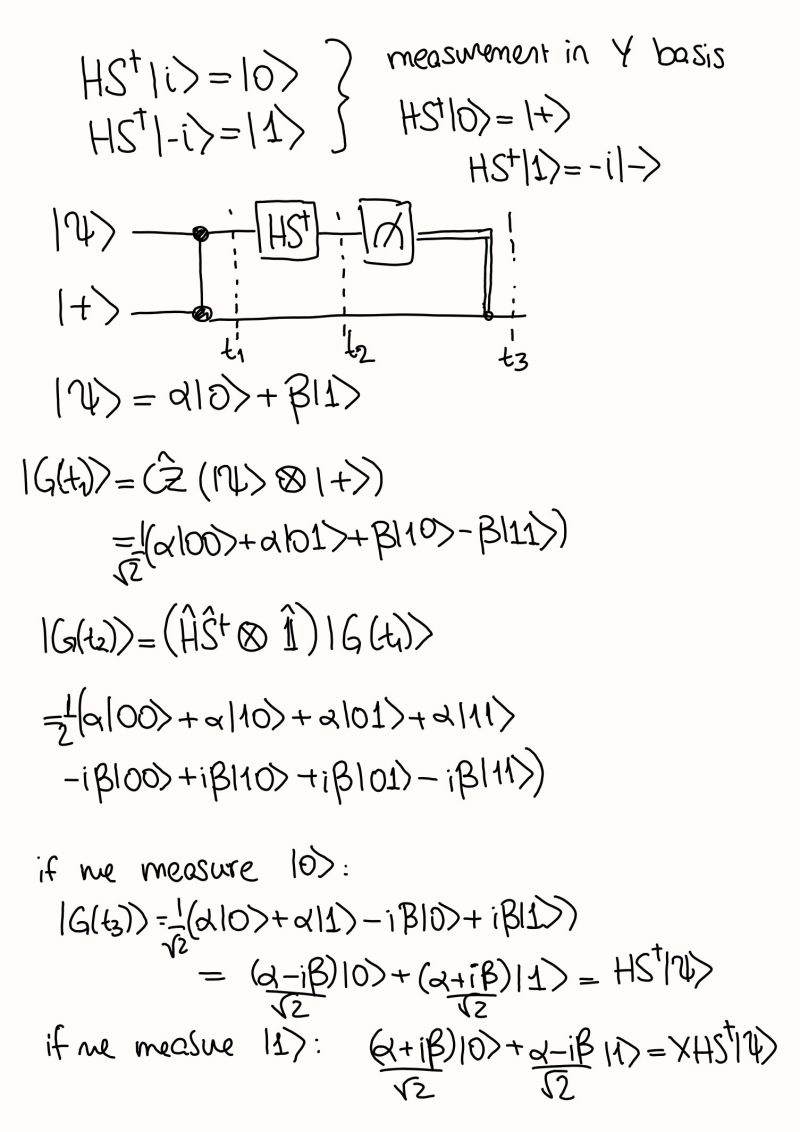 HS†|i> = |0>
HS†|-i> = |1>
measurement in Y basis
HS†|0> = |+>
HS†|1> = -i|->
|Ψ>
HS†
|+>
t₁
t₂
t₃
|Ψ> = α|0> + β|1>
|G(t₁)> = CẐ (|Ψ> ⊗ |+>)
= 1/√2 (α|00> + α|01> + β|10> - β|11>)
|G(t₂)> = (ĤŜ† ⊗ 1̂) |G(t₁)>
= 1/2 (α|00> + α|10> + α|01> + α|11>
-iβ|00> + iβ|10> + iβ|01> - iβ|11>)
if we measure |0>:
|G(t₃)> = 1/√2 (α|0> + α|1> - iβ|0> + iβ|1>)
= (α-iβ)/√2 |0> + (α+iβ)/√2 |1> = HS†|Ψ>
if we measue |1>: (α+iβ)/√2 |0> + α-iβ/√2 |1> = XHS†|Ψ>